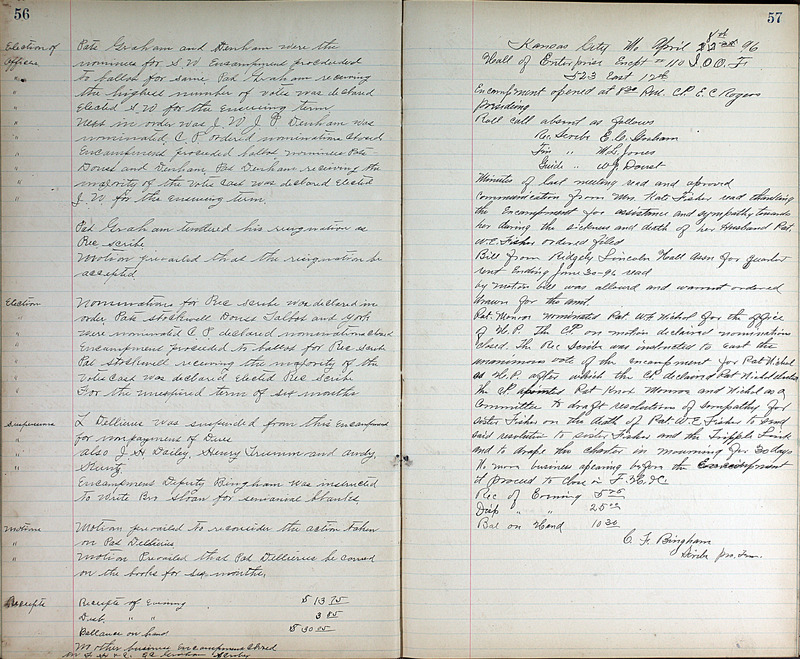 56
Election of Pats Graham and Denham were the
Officers nominees for S W Encampment proceeded
" to ballot for same Pat Graham receiving
" the highest number of votes was declared
" Elected S. W for the Ensueing term
" Next in order was J. W. J. P. Denham was
" nominated, C. P. ordered nominations closed
" Encampment proceeded ballot nominees Pats
" Doust and Denham, Pat Denham receiving the
" majority of the votes cast was declared Elected
" J. W for the ensueing term
Pat Graham tendered his resignation as
Rec Scribe
Motion prevailed that the resignation be
accepted
Election Nominations for Rec Scribe was declared in
" order Pats Stockwell Doust Talbot and York
" were nominated C P declared nominations closed
" Encampment proceeded to ballot for Rec Scribe
" Pat Stockwell receiving the majority of the
" Votes Cast was declared Elected Rec Scribe
" For the unexpired term of six months
Suspensions L Dellieus was suspended from this Encampment
" for nonpayment of Dues
" also J. H Dailey, Henry Trumm and andy
" Stuntz
Encampment Deputy Bingham was instructed
to write Bro Sloan for semianial blanks
Motions Motion prevailed to reconsider the action taken
" on Pat Dellieus
" Motion Prevailed that Pat Dellieus be carried
on the books for six months,
Receipts Receipts of Evening $ 13 75
Disb. " " 3 85
Ballance on hand $ 30 55
No other business Encampment closed
in F. H & C. EC Graham Scribe
57
Kansas City Mo April 1st 96
Hall of Enterprise Encpt # 110 I. O. O. F.
523 East 12th
Encampment opened at 8 Pat. C.P. E C Rogers
presiding
Roll call absent as follows
Rec. Scribe E. C. Graham
Fin " M. L. Jones
Guide " W. J. Doust
Minutes of last meeting read and aproved
Communication from Mrs. Kate Fisher read thanking
the Encampment for assistance and sympathy towards
her during the sickness and death of her Husband Pat.
W. E. Fisher ordered filed
Bill from Ridgely Lincoln Hall Assn for quarter
rent Ending June 30-96 read
by motion bill was allowed and warrant ordered
drawn for the amt.
Pat. Monroe nominated Pat W. H Nichol for the office
of H. P. The C.P. on motion declaired nomination
closed. The Rec Scribe was instructed to cast the
unanimous vote of the encampment for Pat Nichol
as H. P. after which the C.P. declaired Pat Nichol elected
The C.P. apointed Pat Knox Monroe and Nichol as a
Committee to draft resolutions of sympathy for
sister Fisher on the death of Pat. W. E. Fisher to send
said resolution to sister Fisher and the Tripple Link
and to drape the charter in mourning for 30 days
No more business apearing before the encampment
it proceed to close in F. H. C.
Rec of Evening 5 75
Disb " " 25
Bal on Hand 10 30
C. F. Bingham
Scribe pro. Tem.